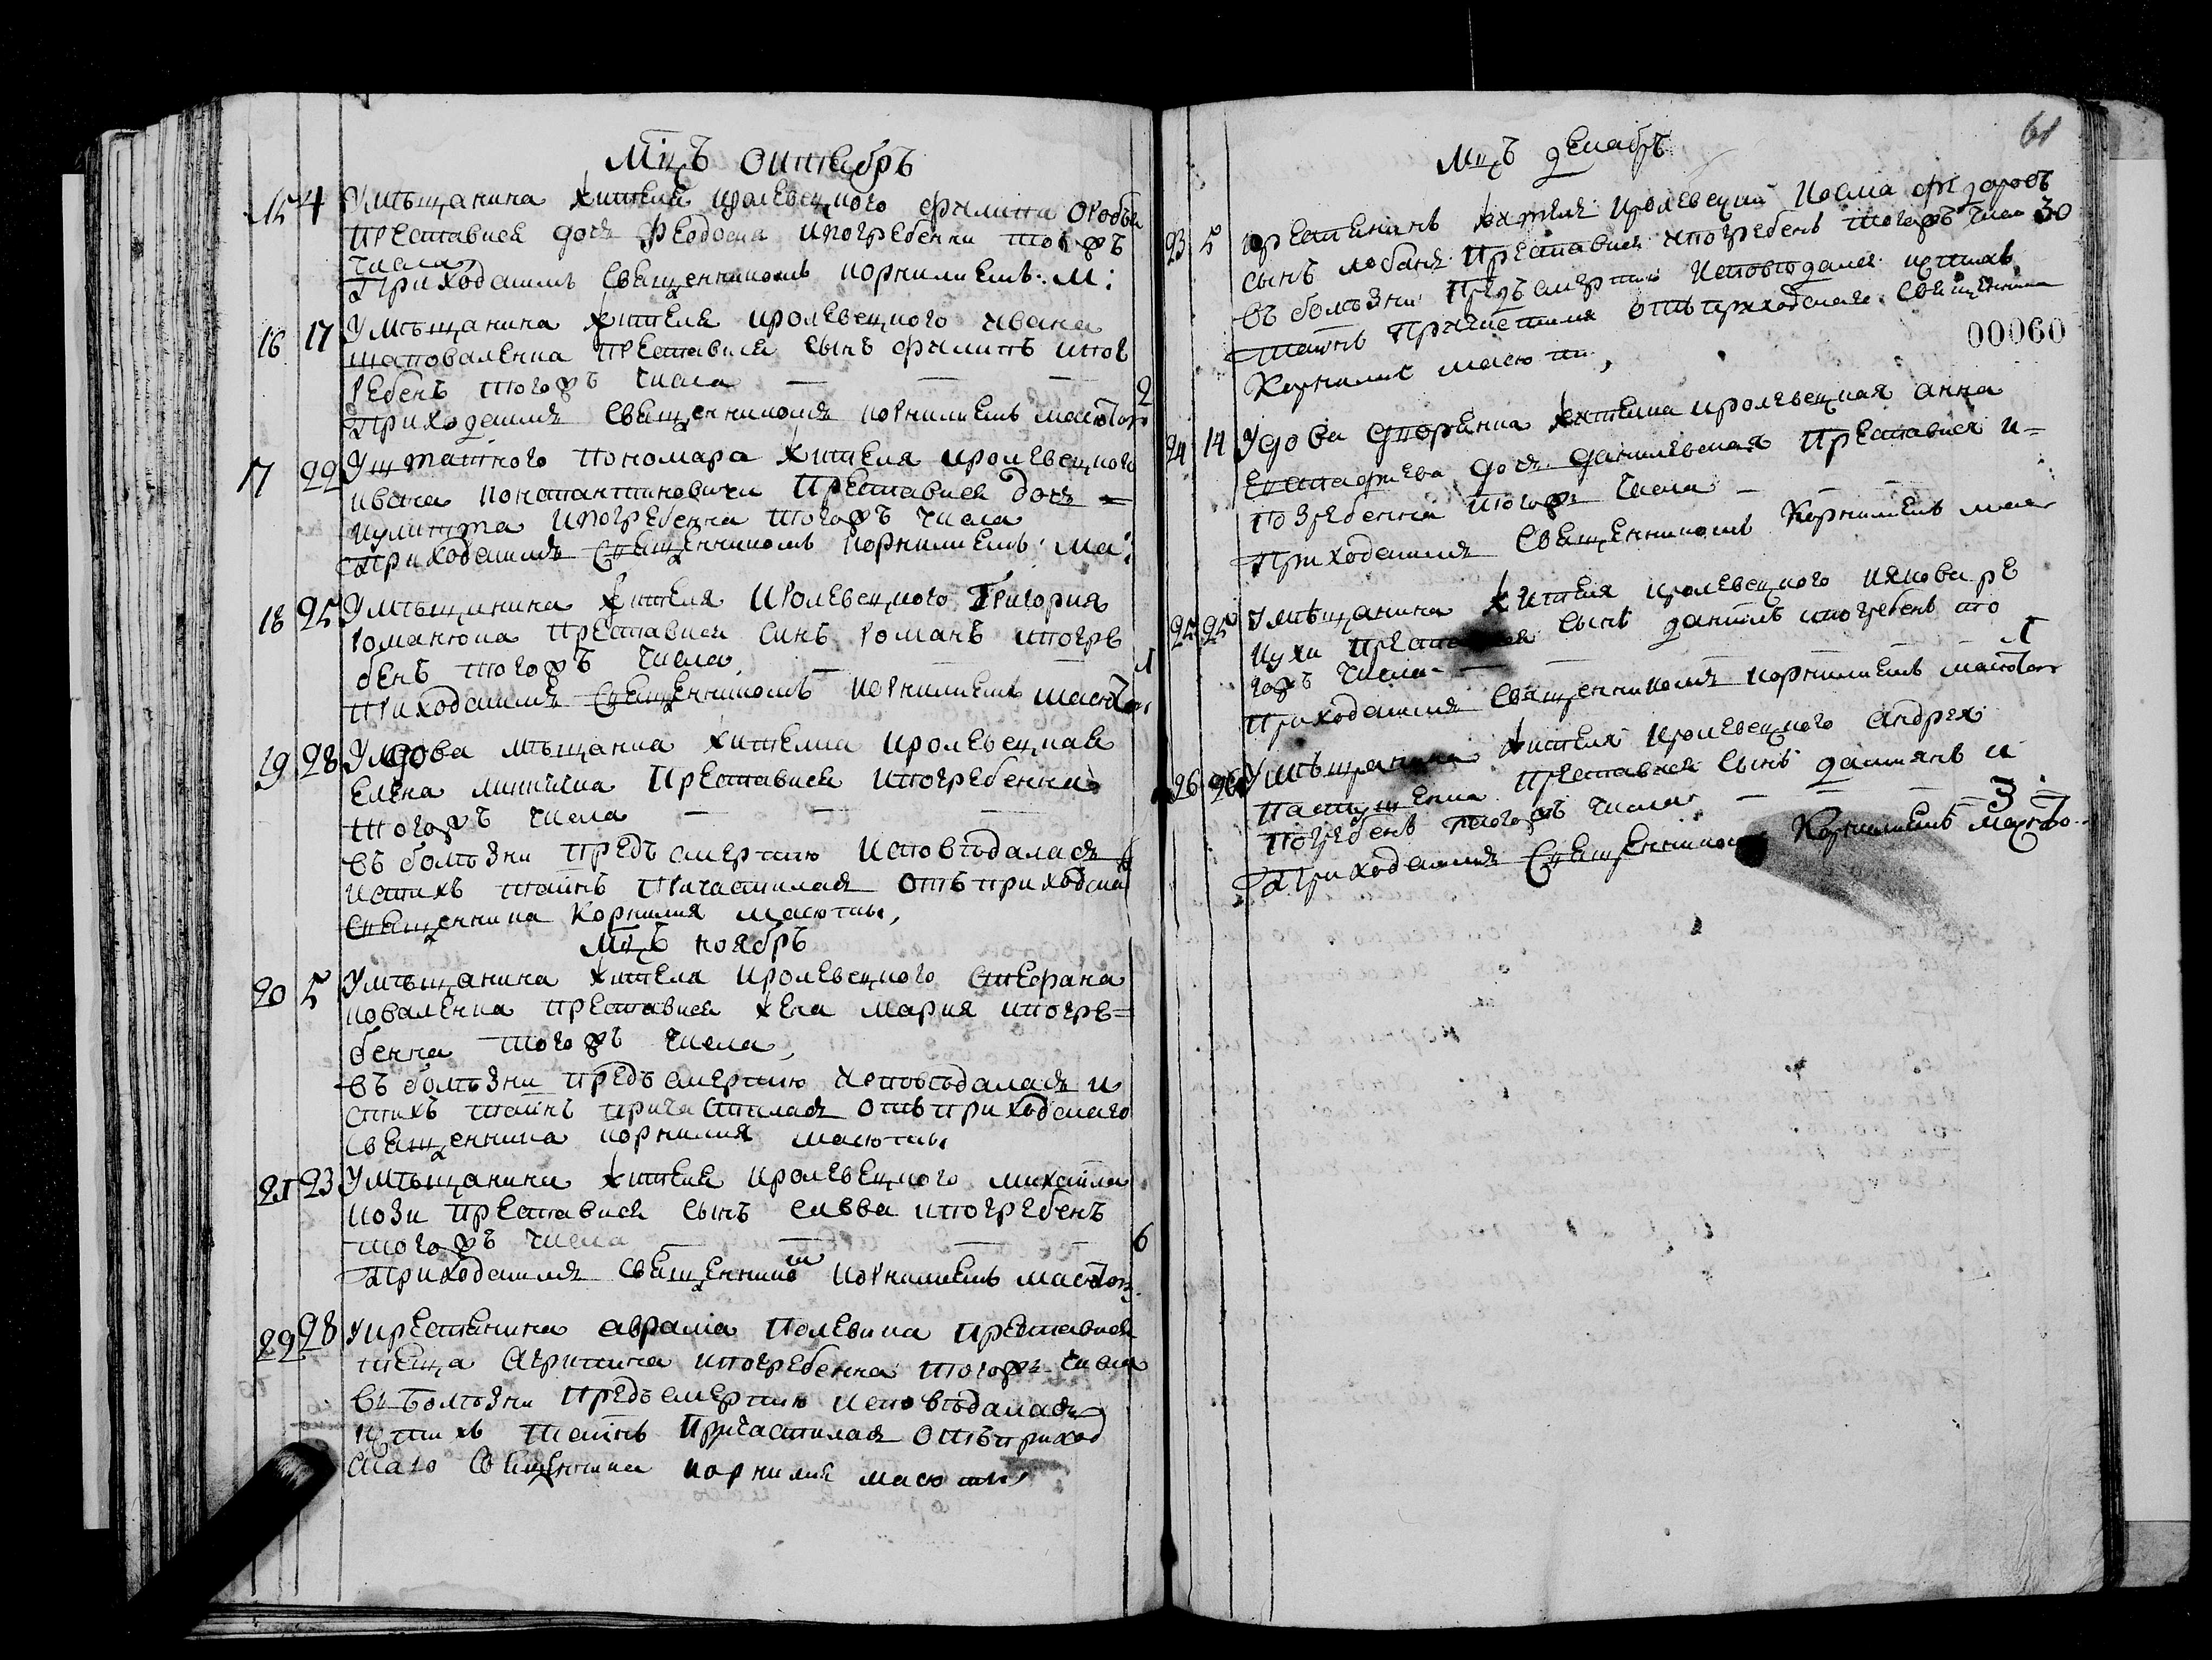 Мц҃ъ октябръ
15 4 У мѣщанина жителя кролевецкого филипа
преставися дочъ Феодосия и погребенна тогожъ
числа,
Приходскимъ Священникомъ корнилиемъ: м:
16 17 У мѣщанина жителя кролевецкого ивана
шаповаленка преставися сынъ филипъ и пог
ребенъ тогожъ числа — — — 2
Приходскимъ Священникомъ корнилиемъ масютою
17 22 У штатного пономара жителя кролевецкого
ивана константиновича Преставися дочъ =
иулитта и погребенна тогожъ числа
Приходскимъ Священникомъ корнилиемъ: ма:
18 25 У мѣщанина жителя кролевецкого Григория
романюка преставися синъ романъ и погре
бенъ тогожъ числа, — — — 1
Приходскимъ Священникомъ корнилиемъ масютою
19 28 Удова мѣщанка жителка кролевецкая
Елена Преставися и погребенна
тогожъ числа — — —
въ болѣзни предъ смертию исповѣдалася
и стихъ таинъ причастилася отъ приходска
Священника Корнилия масюти,
Мц҃ъ ноябръ
20 5 У мѣщанина жителя кролевецкого стефана
коваленка преставися жена мария и погре=
бенна тогожъ числа,
въ болѣзни предъ смертию исповѣдалася и
стихъ таинъ причастилася отъ приходскаго
Священника корнилия масюти
21 23 У мѣщанина жителя кролевецкого михаила
кози преставися сынъ савва и погребенъ
тогожъ числа — — — 6
Приходскимъ священникомъ корнилиемъ масютою
22 28 У крестянина аврама Полевика преставися
теща Агрипина и погребенна тогожъ числа
въ болѣзни предъ смертию исповѣдалася
и стихъ таинъ Причастилася отъ приход
скаго Священника корнилия масюти,
61
Мц҃ъ декабръ
23 5 крестянинъ жителъ кролевецкий
сынъ преставися и погребенъ тогожъ числа 30
въ болѣзни предъ смертию исповѣдался и стихъ
таинъ Причастился отъ приходскаго священника
Корнилия масюти,
00060
24 14 Удова жителка кролевецкая анна
дочъ Преставися и=
погребенна тогожъ числа — — —
Приходскимъ Священникомъ Корнилиемъ мас
25 25 У мѣщанина жителя кролевецкого иякова ре
куки преставися сынъ данилъ и погребенъ то
гожъ числа — — — — 1
Приходскимъ Священникомъ корнилиемъ масютою
26 26 У мѣщанина жителя кролевецкого андрея
преставися сынъ дамиянъ и
погребенъ тогожъ числа — — — 3
Приходскимъ Священникомъ Корнилиемъ масюто